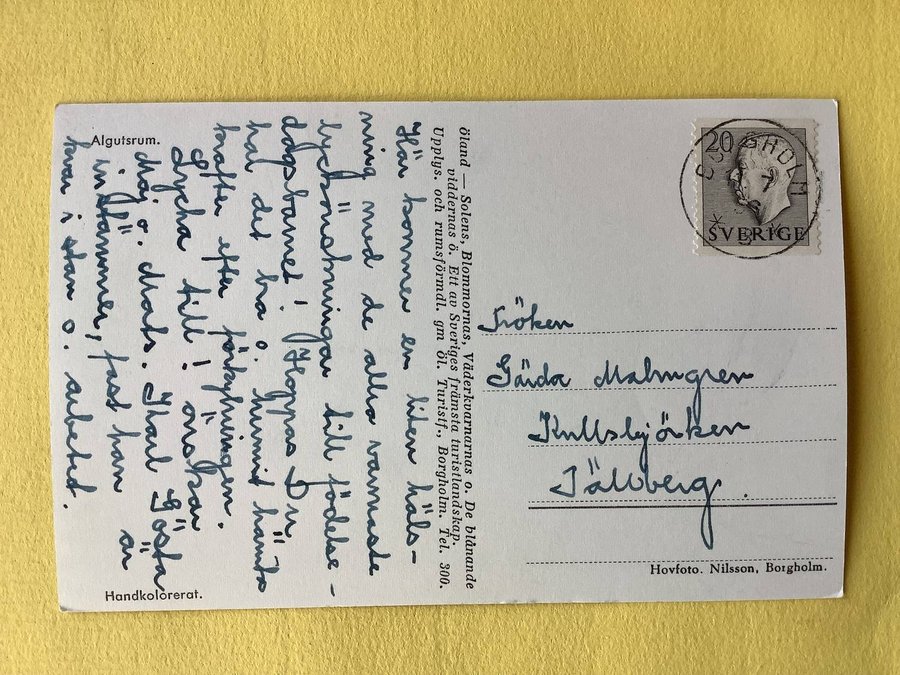 Algutsrum.
Öland — Solens, Blommornas, Väderkvarnarnas o. De blånande
viddernas ö. Ett av Sveriges främsta turistlandskap.
Upplys. och rumsförmdl. gm Öl. Turistf., Borgholm. Tel. 300.
Här kommer en liten häls-
ning med de allra varmaste
lyckönskningar till födelse-
dagsbarnet! Hoppas Du
har det bra o. hunnit hämta
krafter efter förkylningen.
Lycka till! önskar
Maj o. Mats. Gösta
instämmer, fast han är
kvar i stan o. arbetar.
Handkolorerat.
20
SVERIGE
BORGHOLM
Fröken
Gärda Malmgren
Kullsbjörken
Tällberg.
Hovfoto. Nilsson, Borgholm.